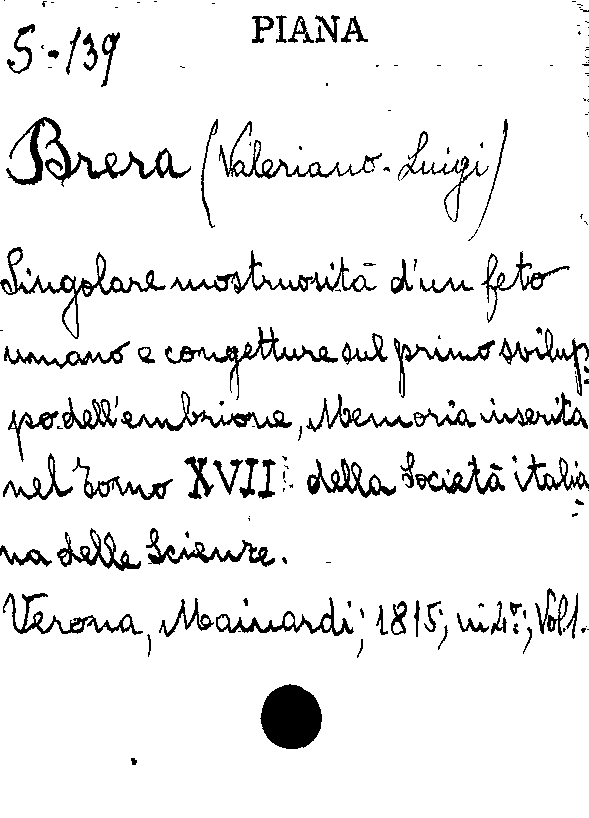 PIANA
5-139
Brera (Valeriano-Luigi)
Singolare mostruosità d'un feto
umano e congetture sul primo svilup=
po dell'embrione, Memoria inserita
nel Tomo XVII: della Società italia=
na delle Scienze.
Verona, Mainardi; 1815; in 4º; Vol. 1.